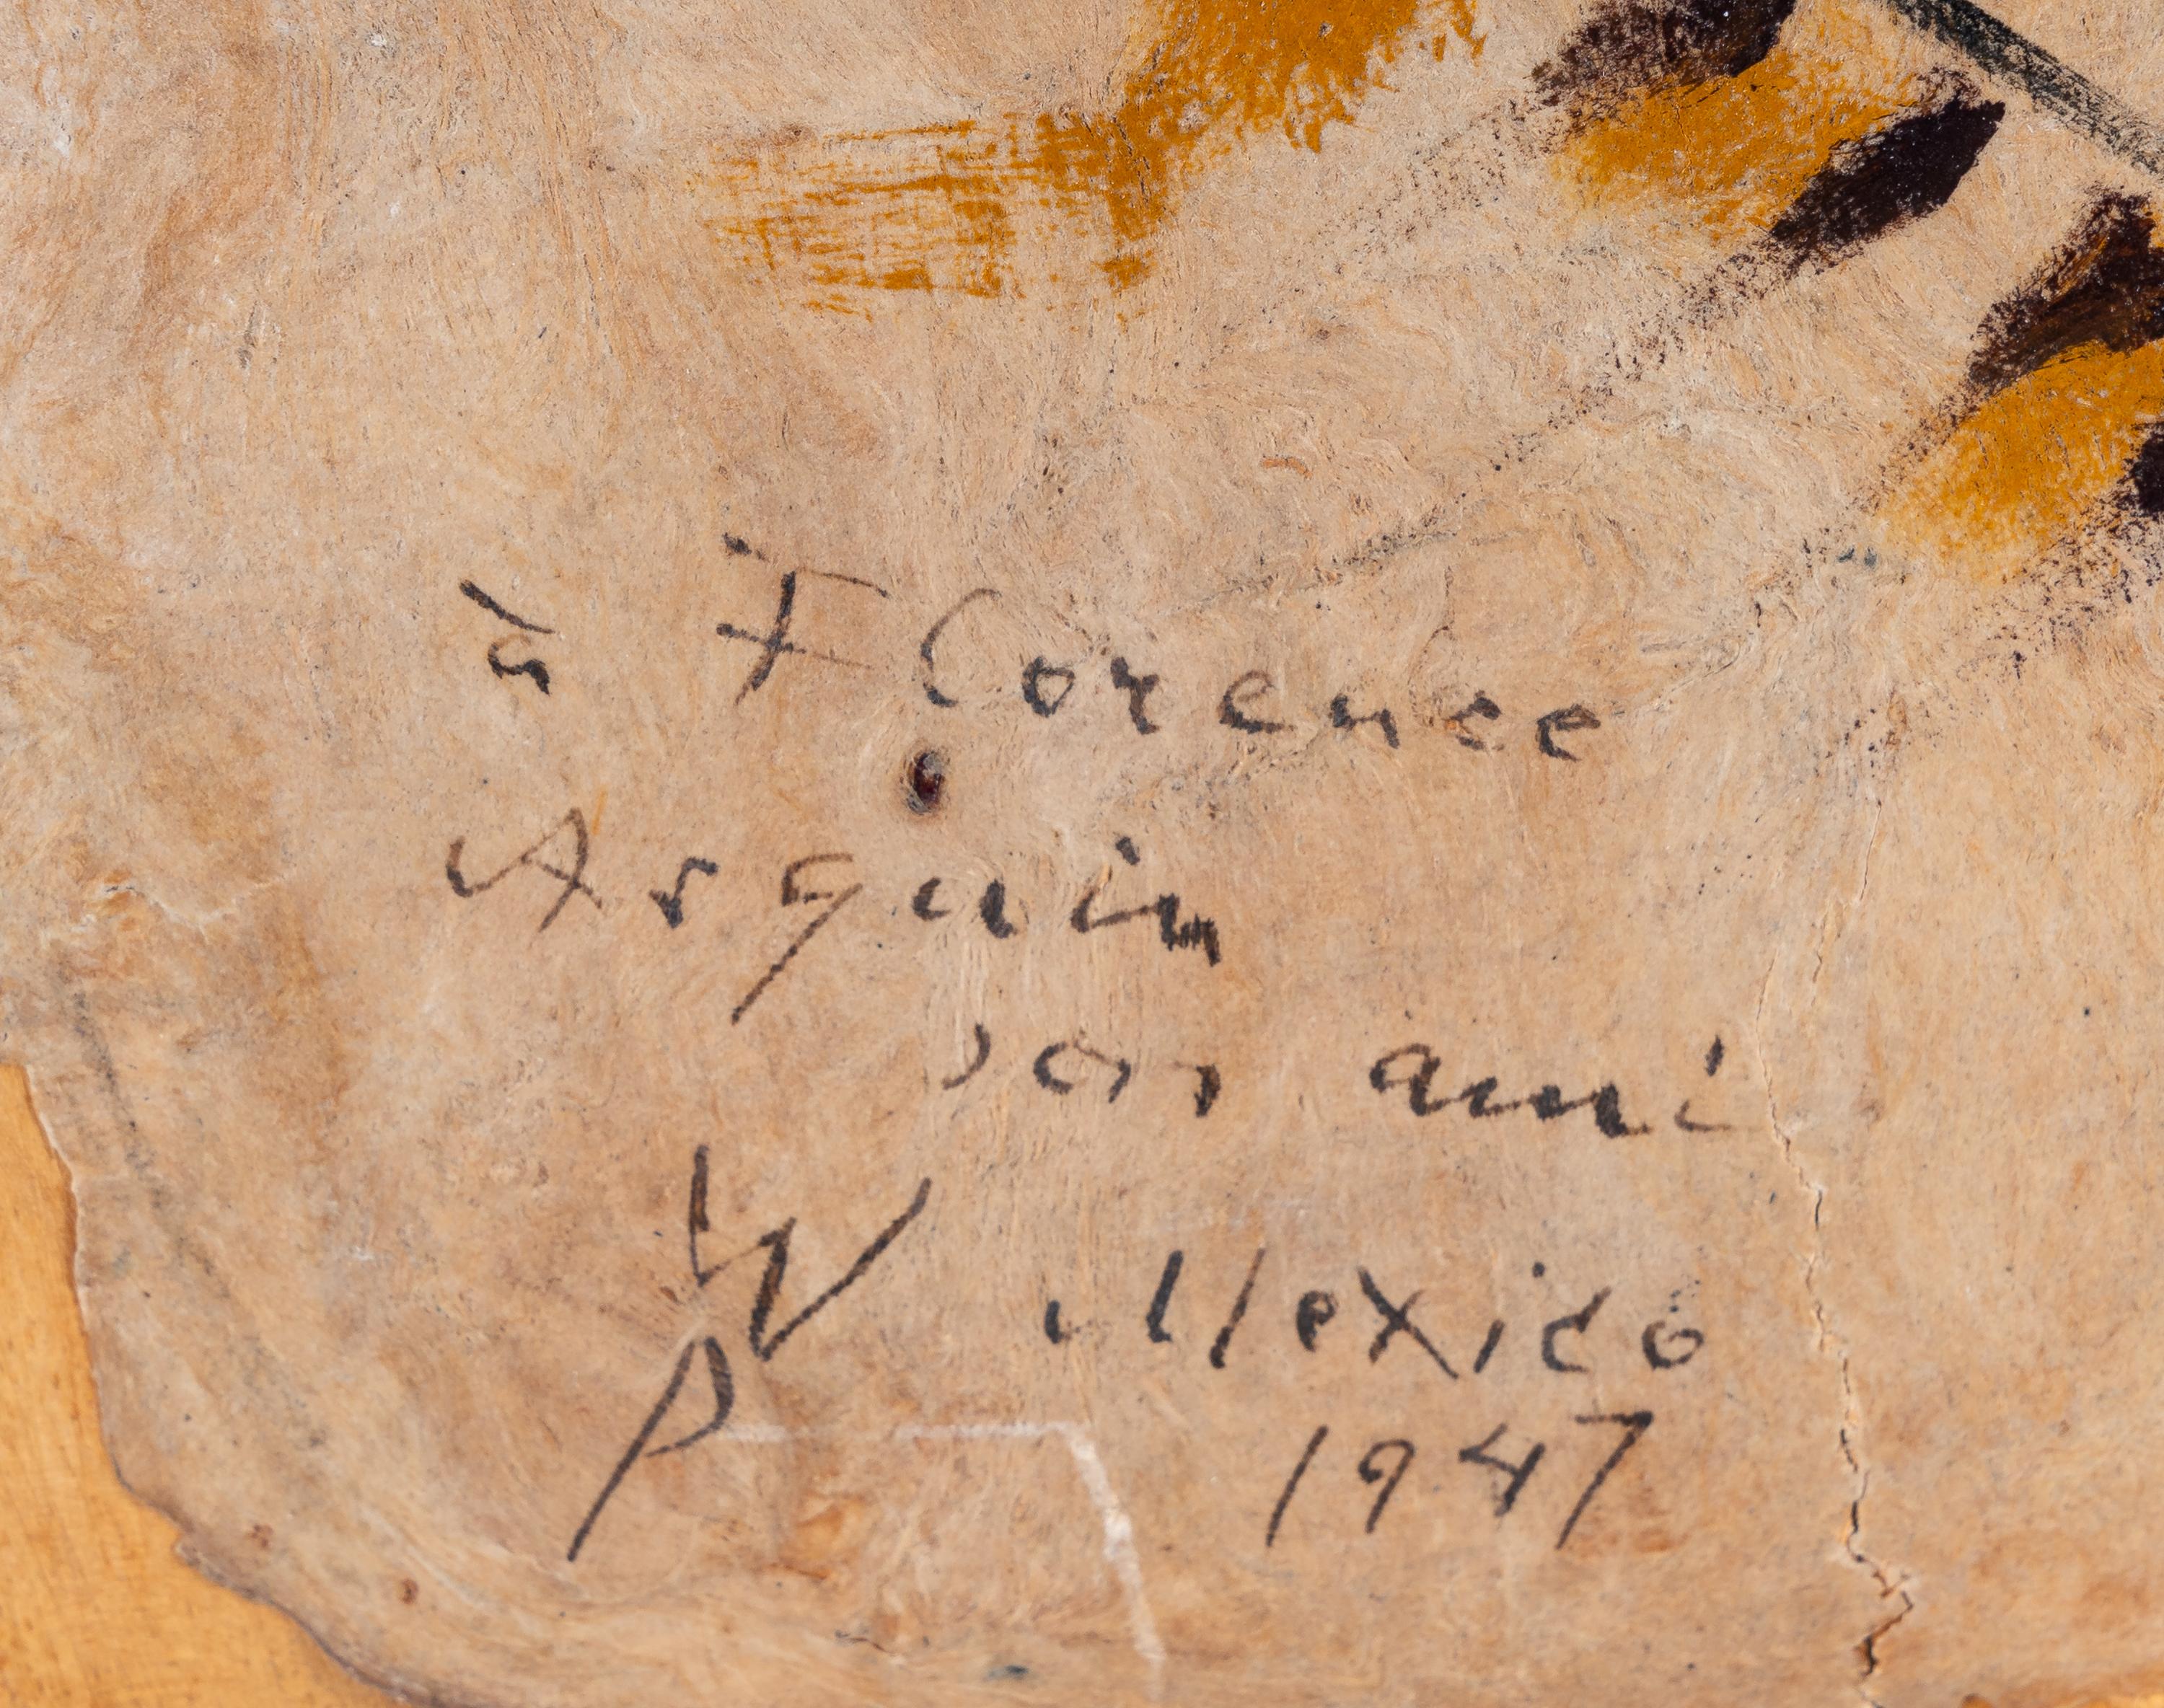 à Florence
Arquin
son ami
WP Mexico
1947